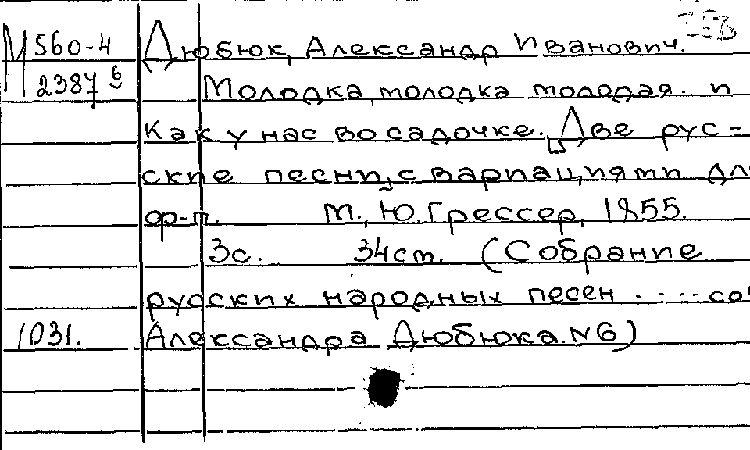 М 560-4 Дюбюк, Александр Иванович.
2387 б Молодка, молодка молодая. и
Как у нас во садочке. Две рус=
ские песни, с вариациями дл
фр-п. М., Ю. Грессер, 1855.
3с. 34 ст. (Собрание
русских народных песен .... со
1031. Александра Дюбюка. №6)